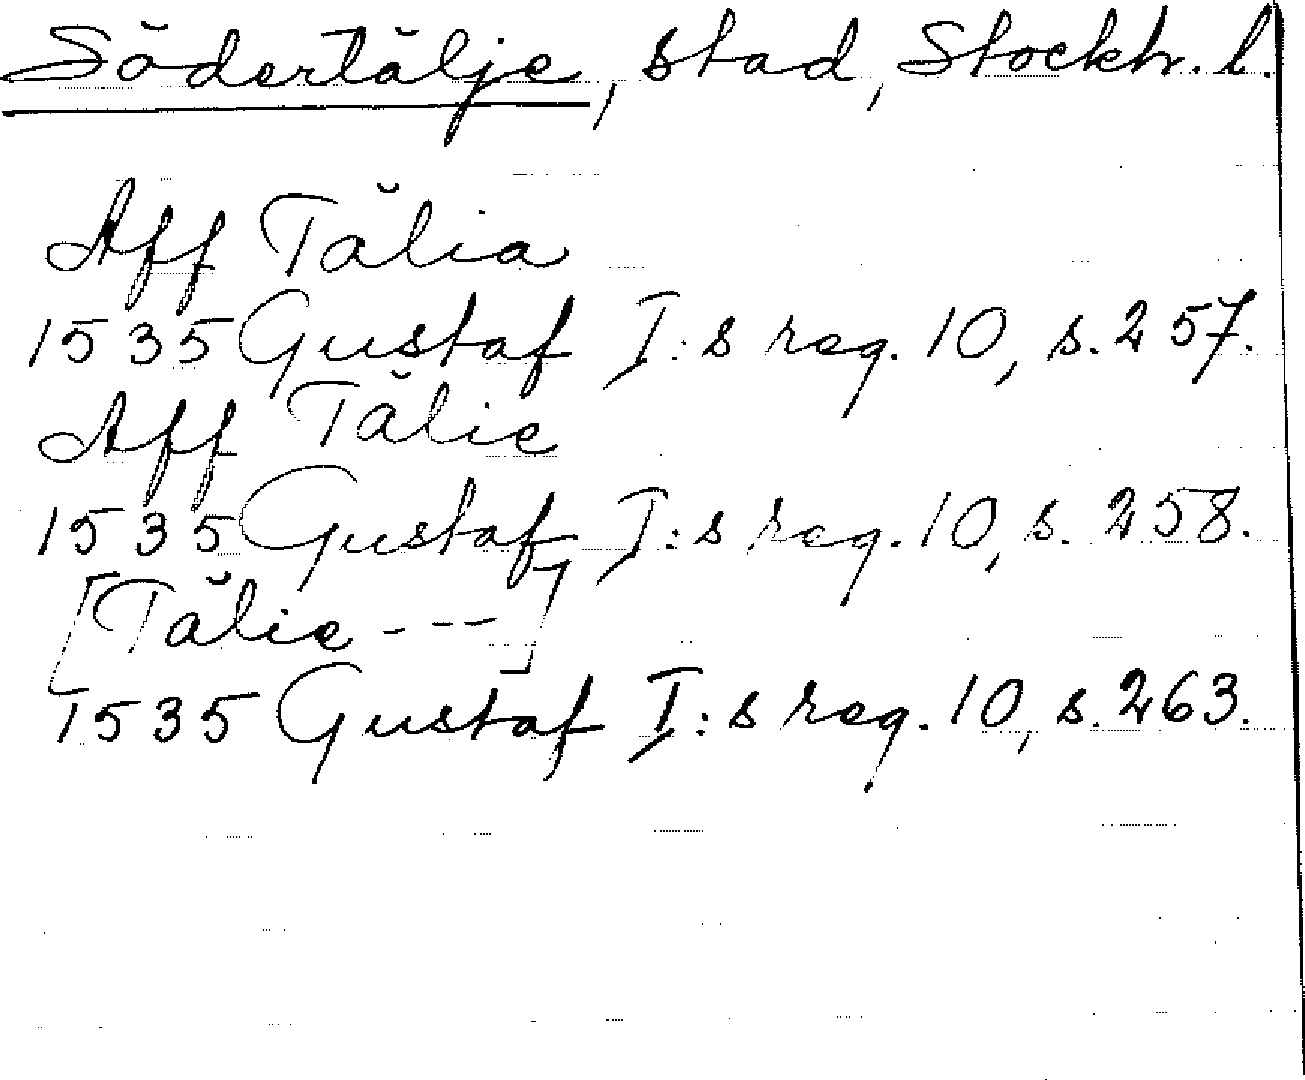 Södertälje, stad, Stockh. l.
Aff Tälia
1535 Gustaf I:s reg. 10, s. 257.
Aff Tälie
1535 Gustaf I:s reg. 10, s. 258.
[Tälie - - -]
1535 Gustaf I:s reg. 10, s. 263.